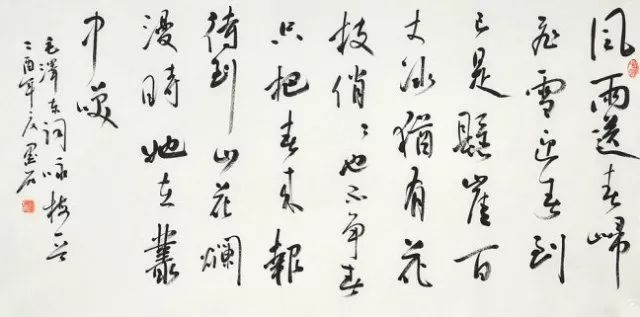 风雨送春歸
飛雪迎春到
已是懸崖百
丈冰猶有花
枝俏〻也不争春
只把春来報
待到山花爛
漫時她在叢
中笑
毛澤东詞咏梅一首
丁酉年夏墨石